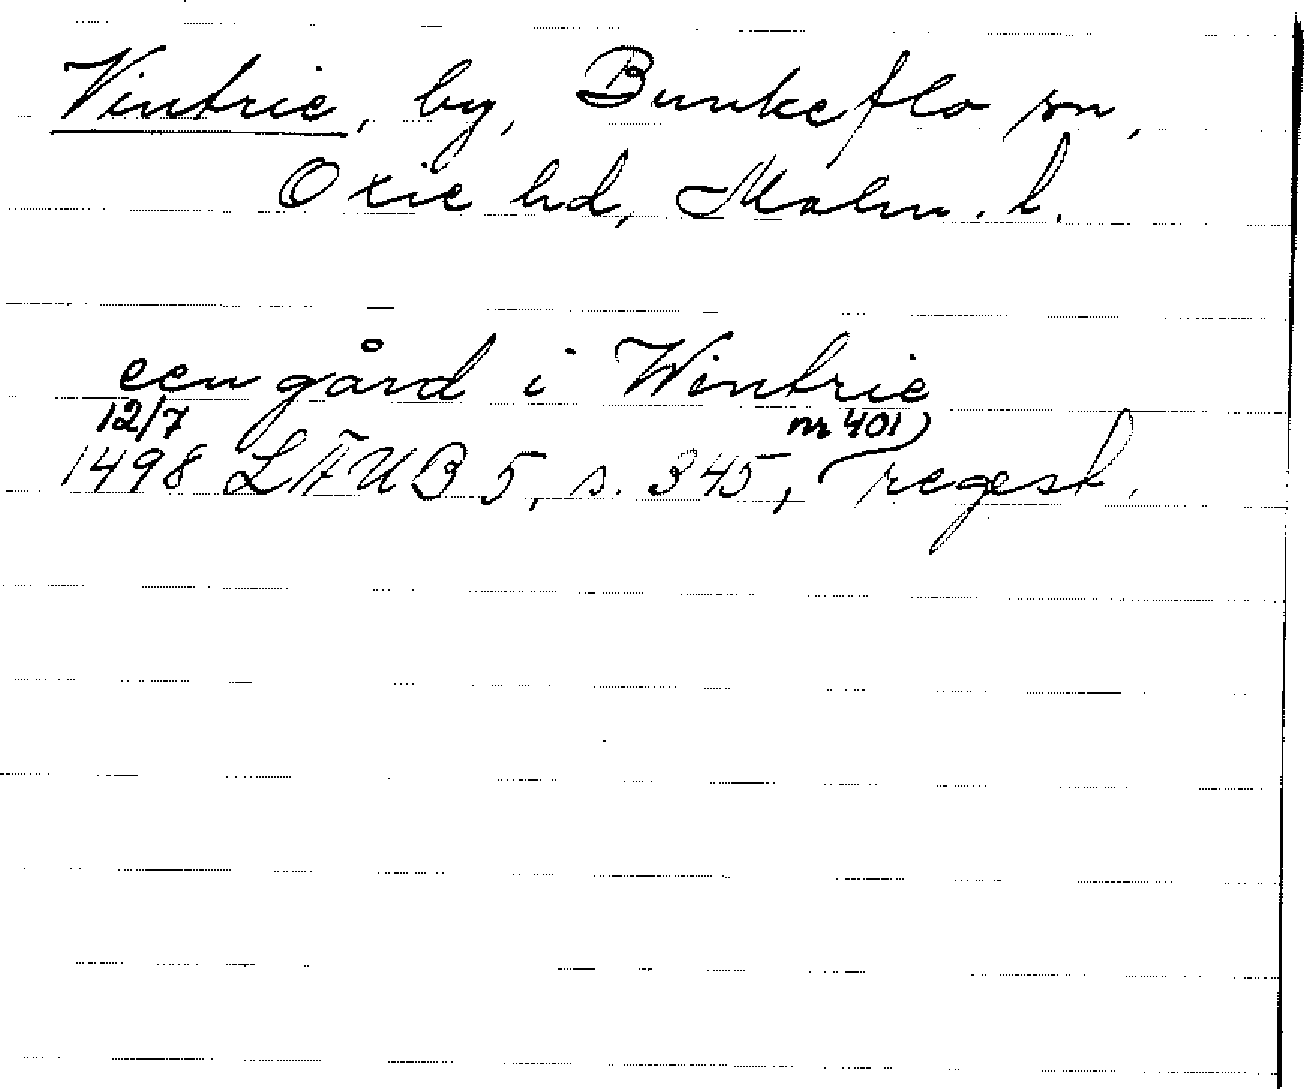 Vintrie, by, Bunkeflo sn,
Oxie hd, Malm. l.
een gård i Wintrie
12/7 nr 401
1498 LÄUB 5, s. 345, regest.